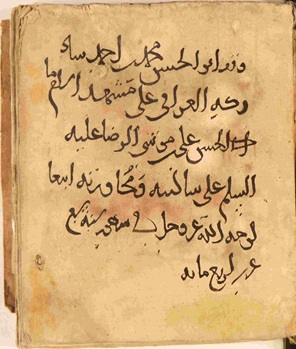 ابو الحسن محمد بن احمد
العراقي على مشهد الامام
الحسن على بن موسى الرضا عليه
السلم على ساكنيه ومجاوريه ابتغا
لوجه الله عز وجل في سنه
اربع مايه